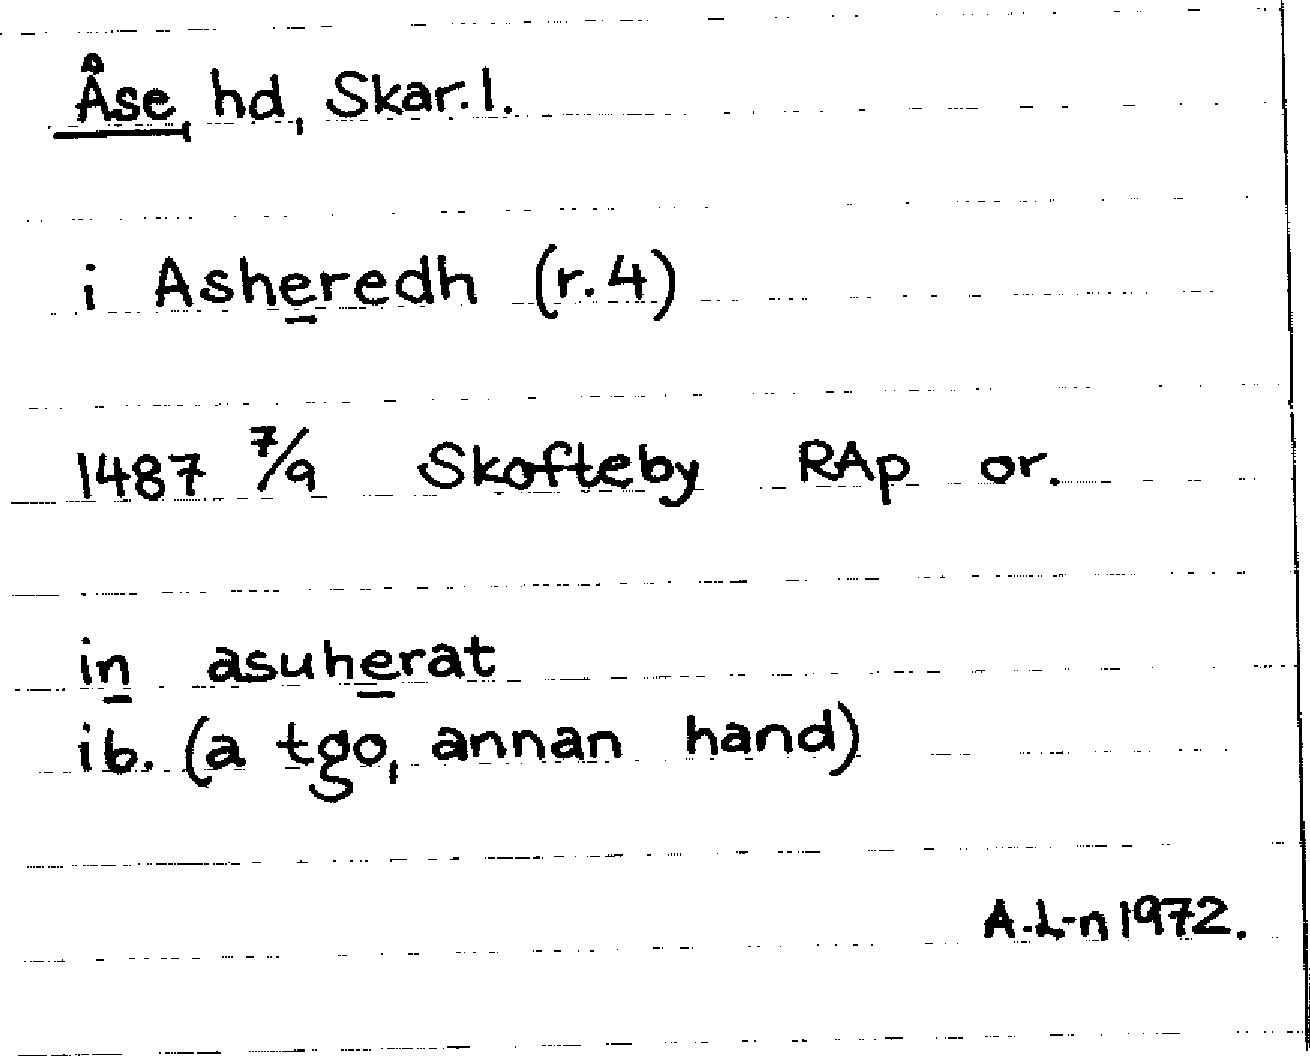 Åse hd, Skar. l.
i Asheredh (r. 4)
1487 7/9 Skofteby RAp or.
in asuherat
ib. (a tgo, annan hand)
A.L-n 1972.